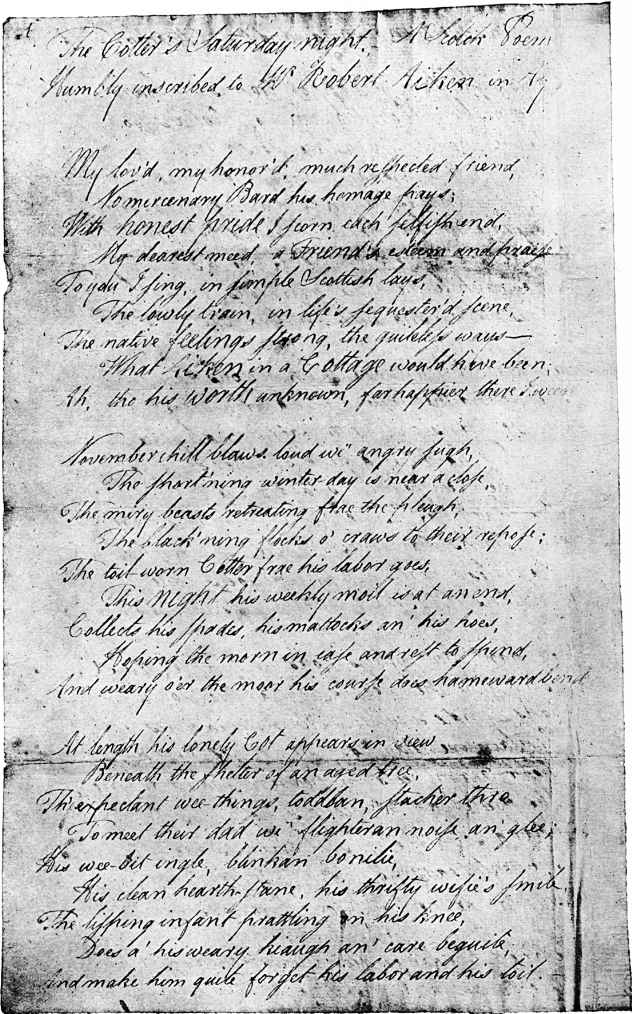 The Cotter's Saturday night. A Scotch Poem
Humbly inscribed to Mr Robert Aiken in Ay
My lov'd, my honor'd, much respected friend,
No mercenary Bard his homage pays;
With honest pride I scorn each selfish end,
My dearest meed, a Friend's esteem and praise
To you I sing, in simple Scottish lays,
The lowly train, in life's sequester'd scene,
The native feelings strong, the guileless ways—
What Aiken in a Cottage would have been;
Ah, tho his worth unknown, far happier there I ween
November chill blaws loud wi' angry sugh,
The short'ning winter day is near a close,
The miry beasts retreating frae the pleugh,
The black'ning flocks o' craws to their repose;
The toil worn Cotter frae his labor goes,
This night his weekly moil is at an end,
Collects his spades, his mattocks an' his hoes,
Hoping the morn in ease and rest to spend,
And weary o'er the moor his course does hameward bend
At length his lonely Cot appears in view
Beneath the shelter of an aged tree,
Th' expectant wee-things, toddlan, stacher thro
To meet their dad wi' flighteran noise an' glee;
His wee-bit ingle, blinkan bonilie,
His clean hearth-stane, his thrifty wifie's smile,
The lisping infant prattling on his knee,
Does a' his weary kiaugh an' care beguile,
And make him quite forget his labor and his toil.—